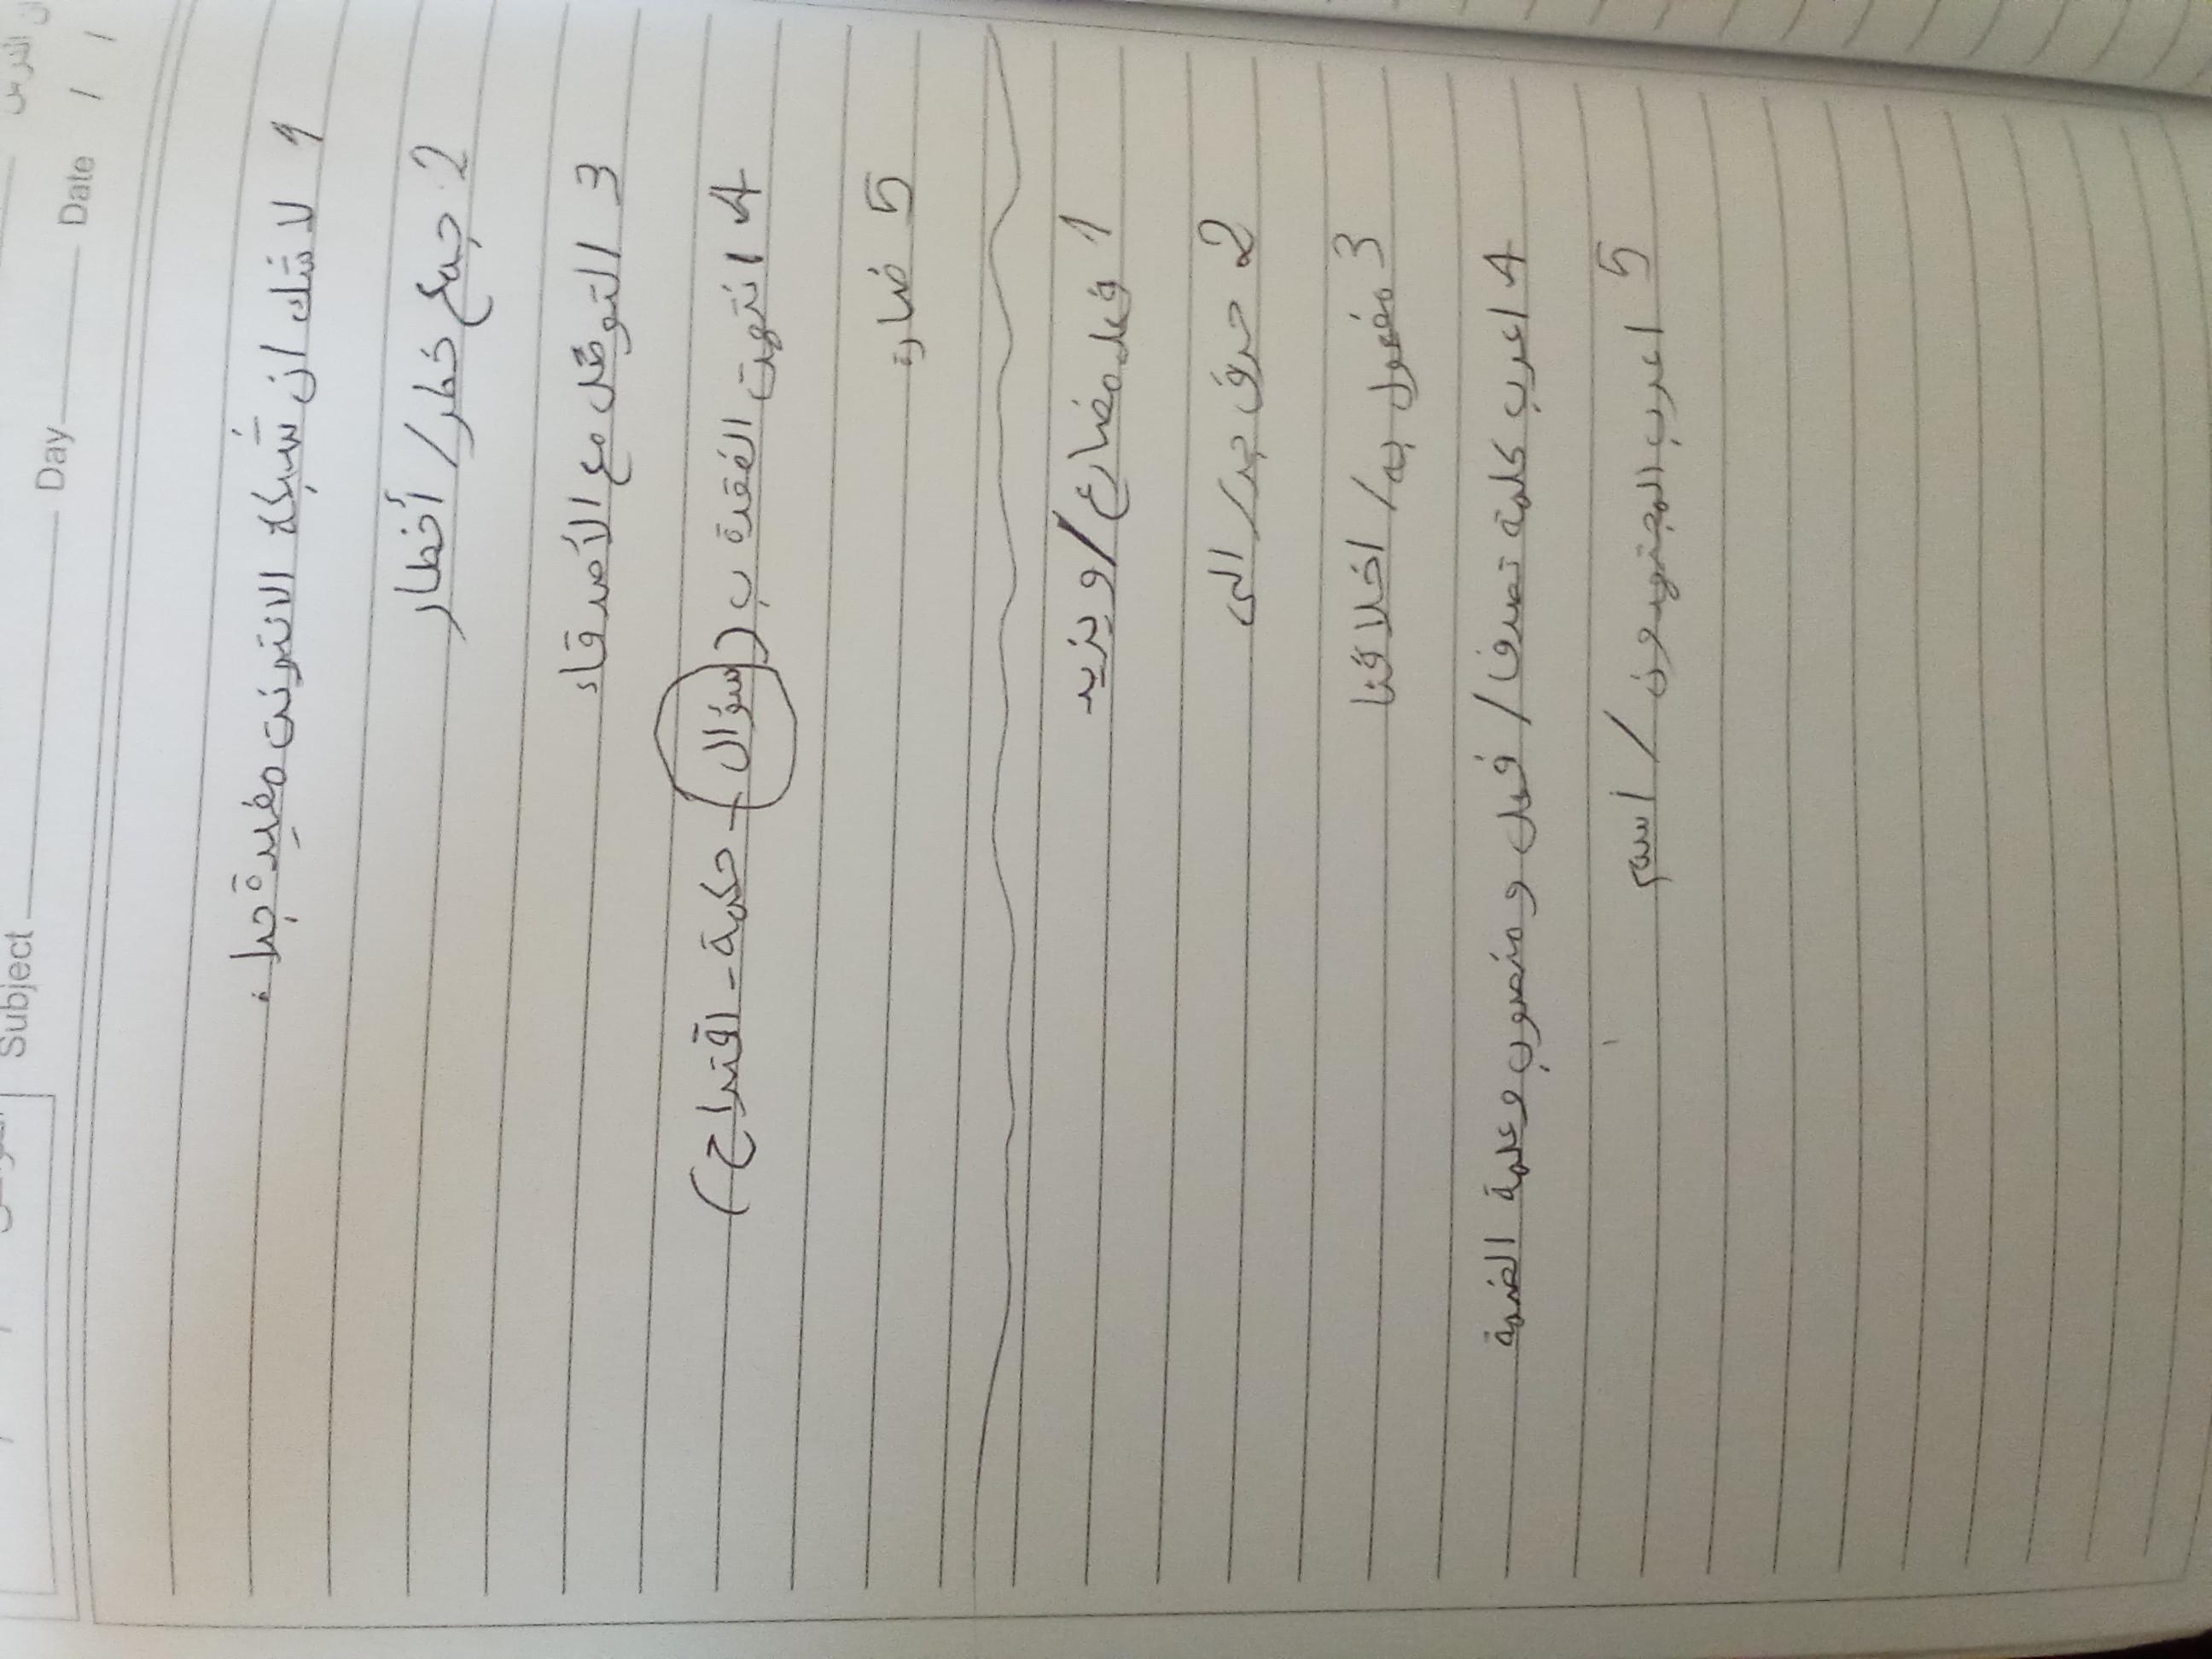 Subject Day Date / /
1 لا شك ان شبكة الانترنت مفيدة جدا.
2 جمع خطر / أخطار
3 التوصل مع الأصدقاء
4 انتهت الفقرة ب (سؤال - حكمة - اقتراح)
5 ضارة
1 فعل مضارع / و يزيد
2 حرف جر / الى
3 مفعول به / اخلاقنا
4 اعرب كلمة تصرف / فعل و منصوب و علمة الضمة
5 اعرب المجتهدون / اسم